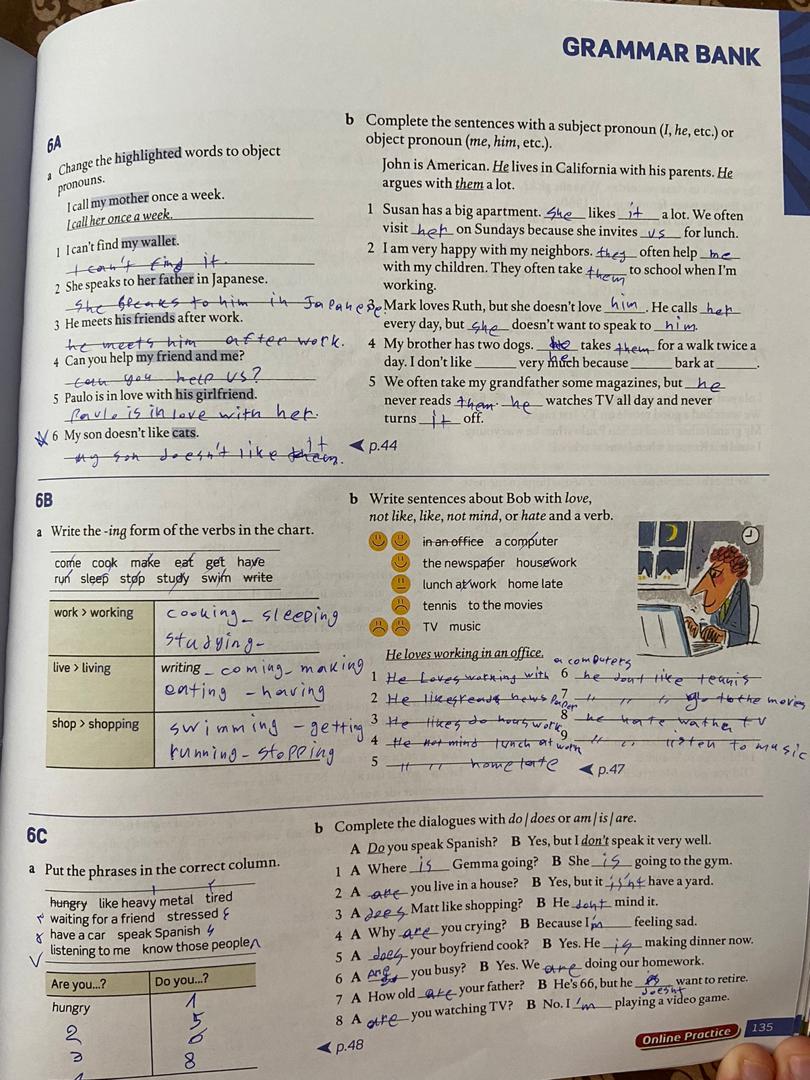 GRAMMAR BANK
6A
a Change the highlighted words to object
pronouns.
I call my mother once a week.
I call her once a week.
1 I can't find my wallet.
I can't find it.
2 She speaks to her father in Japanese.
She speaks to him in Japanese.
3 He meets his friends after work.
he meets him after work.
4 Can you help my friend and me?
can you help us?
5 Paulo is in love with his girlfriend.
Paulo is in love with her.
6 My son doesn't like cats.
my son doesn't like them. it
b Complete the sentences with a subject pronoun (I, he, etc.) or
object pronoun (me, him, etc.).
John is American. He lives in California with his parents. He
argues with them a lot.
1 Susan has a big apartment. she likes it a lot. We often
visit her on Sundays because she invites us for lunch.
2 I am very happy with my neighbors. they often help me
with my children. They often take them to school when I'm
working.
3 Mark loves Ruth, but she doesn't love him. He calls her
every day, but she doesn't want to speak to him.
4 My brother has two dogs. he takes them for a walk twice a
day. I don't like ______ very much because ______ bark at ______.
5 We often take my grandfather some magazines, but he
never reads them. he watches TV all day and never
turns it off.
p.44
6B
a Write the -ing form of the verbs in the chart.
come cook make eat get have
run sleep stop study swim write
work > working cooking - sleeping
studying -
live > living writing - coming - making
eating - having
shop > shopping swimming - getting
running - stopping
b Write sentences about Bob with love,
not like, like, not mind, or hate and a verb.
in an office a computer
the newspaper housework
lunch at work home late
tennis to the movies
TV music
He loves working in an office.
1 He Loves working with a computers
2 He likes reads news Paper
3 He likes do hous work
4 He not mind lunch at work
5 " " home late
6 he dont like tennis
7 " " " go to the movies
8 he hate wather TV
9 " " listen to music
p.47
6C
a Put the phrases in the correct column.
hungry like heavy metal tired
waiting for a friend stressed
have a car speak Spanish
listening to me know those people
Are you...? Do you...?
hungry 1
2 5
3 6
8
b Complete the dialogues with do / does or am / is / are.
A Do you speak Spanish? B Yes, but I don't speak it very well.
1 A Where is Gemma going? B She is going to the gym.
2 A are you live in a house? B Yes, but it isn't have a yard.
3 A does Matt like shopping? B He dont mind it.
4 A Why are you crying? B Because I'm feeling sad.
5 A does your boyfriend cook? B Yes. He is making dinner now.
6 A are you busy? B Yes. We are doing our homework.
7 A How old are your father? B He's 66, but he doesnt want to retire.
8 A are you watching TV? B No. I 'm playing a video game.
p.48
Online Practice 135